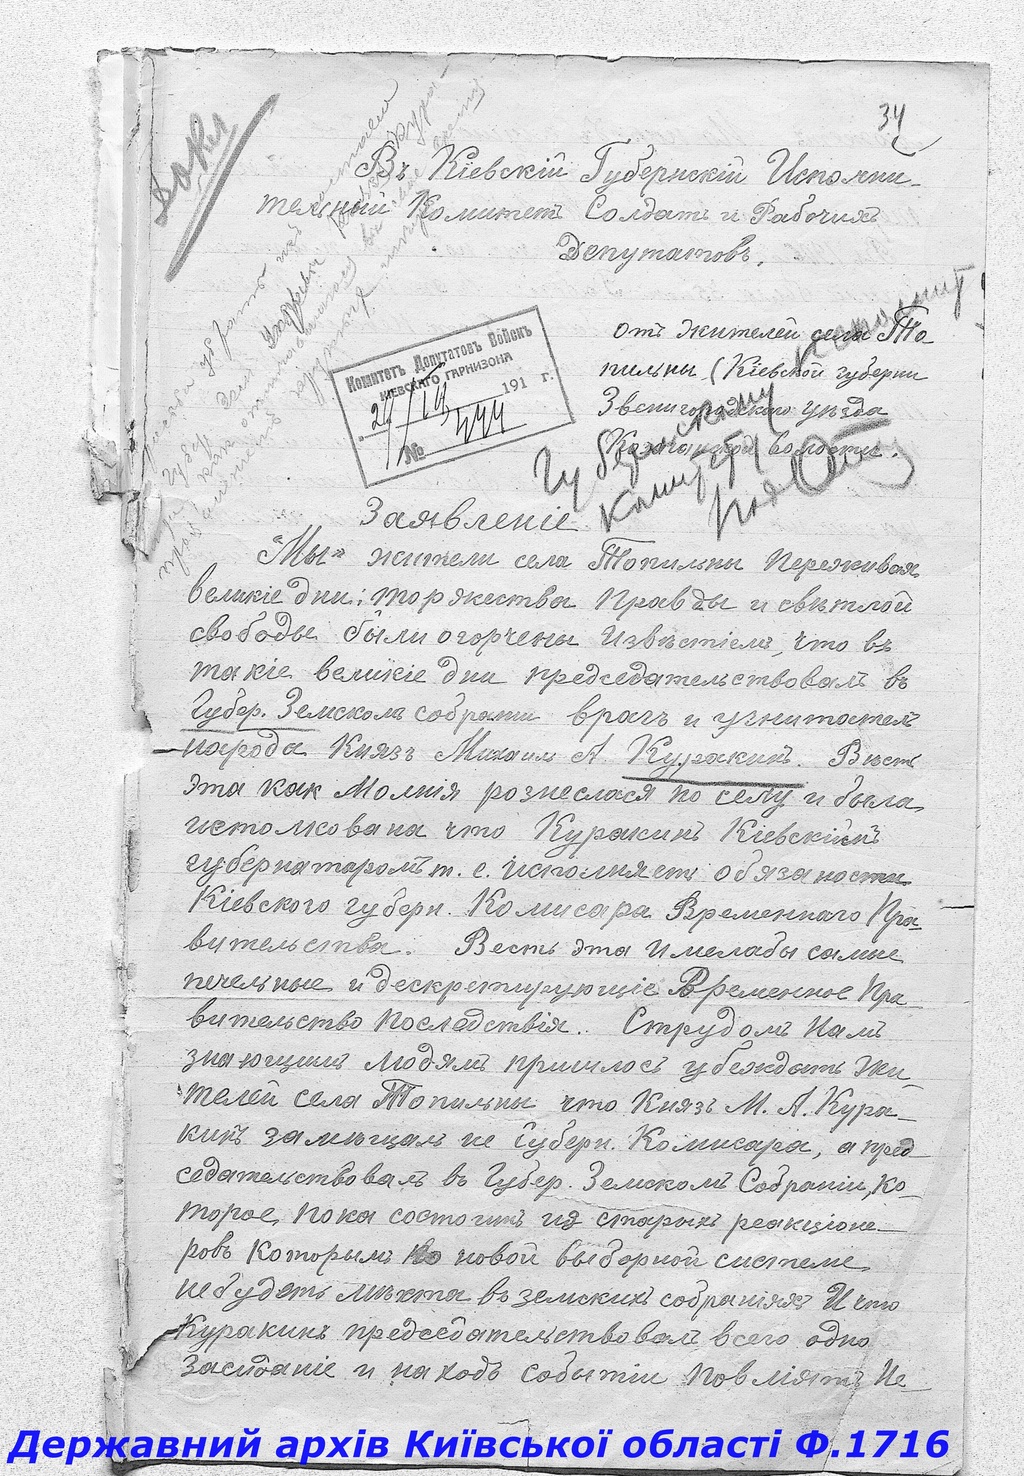 34
Докл
Въ Кіевскій Губернскій Исполни-
тельный Комитетъ Солдатъ и Рабочихъ
Депутатовъ.
отъ жителей села То-
пильны (Кіевской губерни
Звенигородскаго уѣзда
волости.
Комитетъ Депутатовъ Войскъ
КІЕВСКАГО ГАРНИЗОНА
29/IV 191 г.
№ 444
Губернскому
Комитету
Заявленіе
"Мы" жители села Топильны Переживая
великіе дни; торжества Правды и свѣтлой
свободы были огорчены Извѣстіем, что въ
такіе великіе дни председательствовалъ въ
Губер. Земскомъ собрании врагъ и угнитатель
народа Князь Михаил А. Куракинъ. Вѣсть
эта как Молнія рознеслася по селу и была
истолкована что Куракинъ Кіевскій
губернаторомъ т. е. исполняетъ обязаности
Кіевского губерн. Комисара Временнаго Пра-
вительства. Весть эта Имелабы самые
печельные и дескретирующіе Временное Пра-
вительство Последствія. Струдомъ Намъ
знающимъ людямъ пришлось убеждать жи-
телей села Топильны что Князь М. А. Кура-
кинъ замѣщал не Губерн. Комисара, а пред-
седательствовалъ въ Губер. Земскомъ Собраніи, Ко-
торое, пока состоитъ из старыхъ реакціоне-
ровъ Которымъ по новой выборной системе
небудетъ мѣста въ земскихъ собраніяхъ И что
Куракинъ председательствовалъ всего одно
Заседаніе и на ходъ событіи Повліятъ Не
Державний архів Київської області Ф.1716